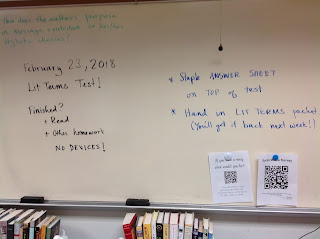 How does the author's purpose
or message contribute to his/her
stylistic choices?
February 23, 2018
Lit Terms Test!
Finished?
+ Read
+ Other homework
NO DEVICES!
* Staple ANSWER SHEET
on TOP of test
* Hand in LIT TERMS packet
(You'll get it back next week!)